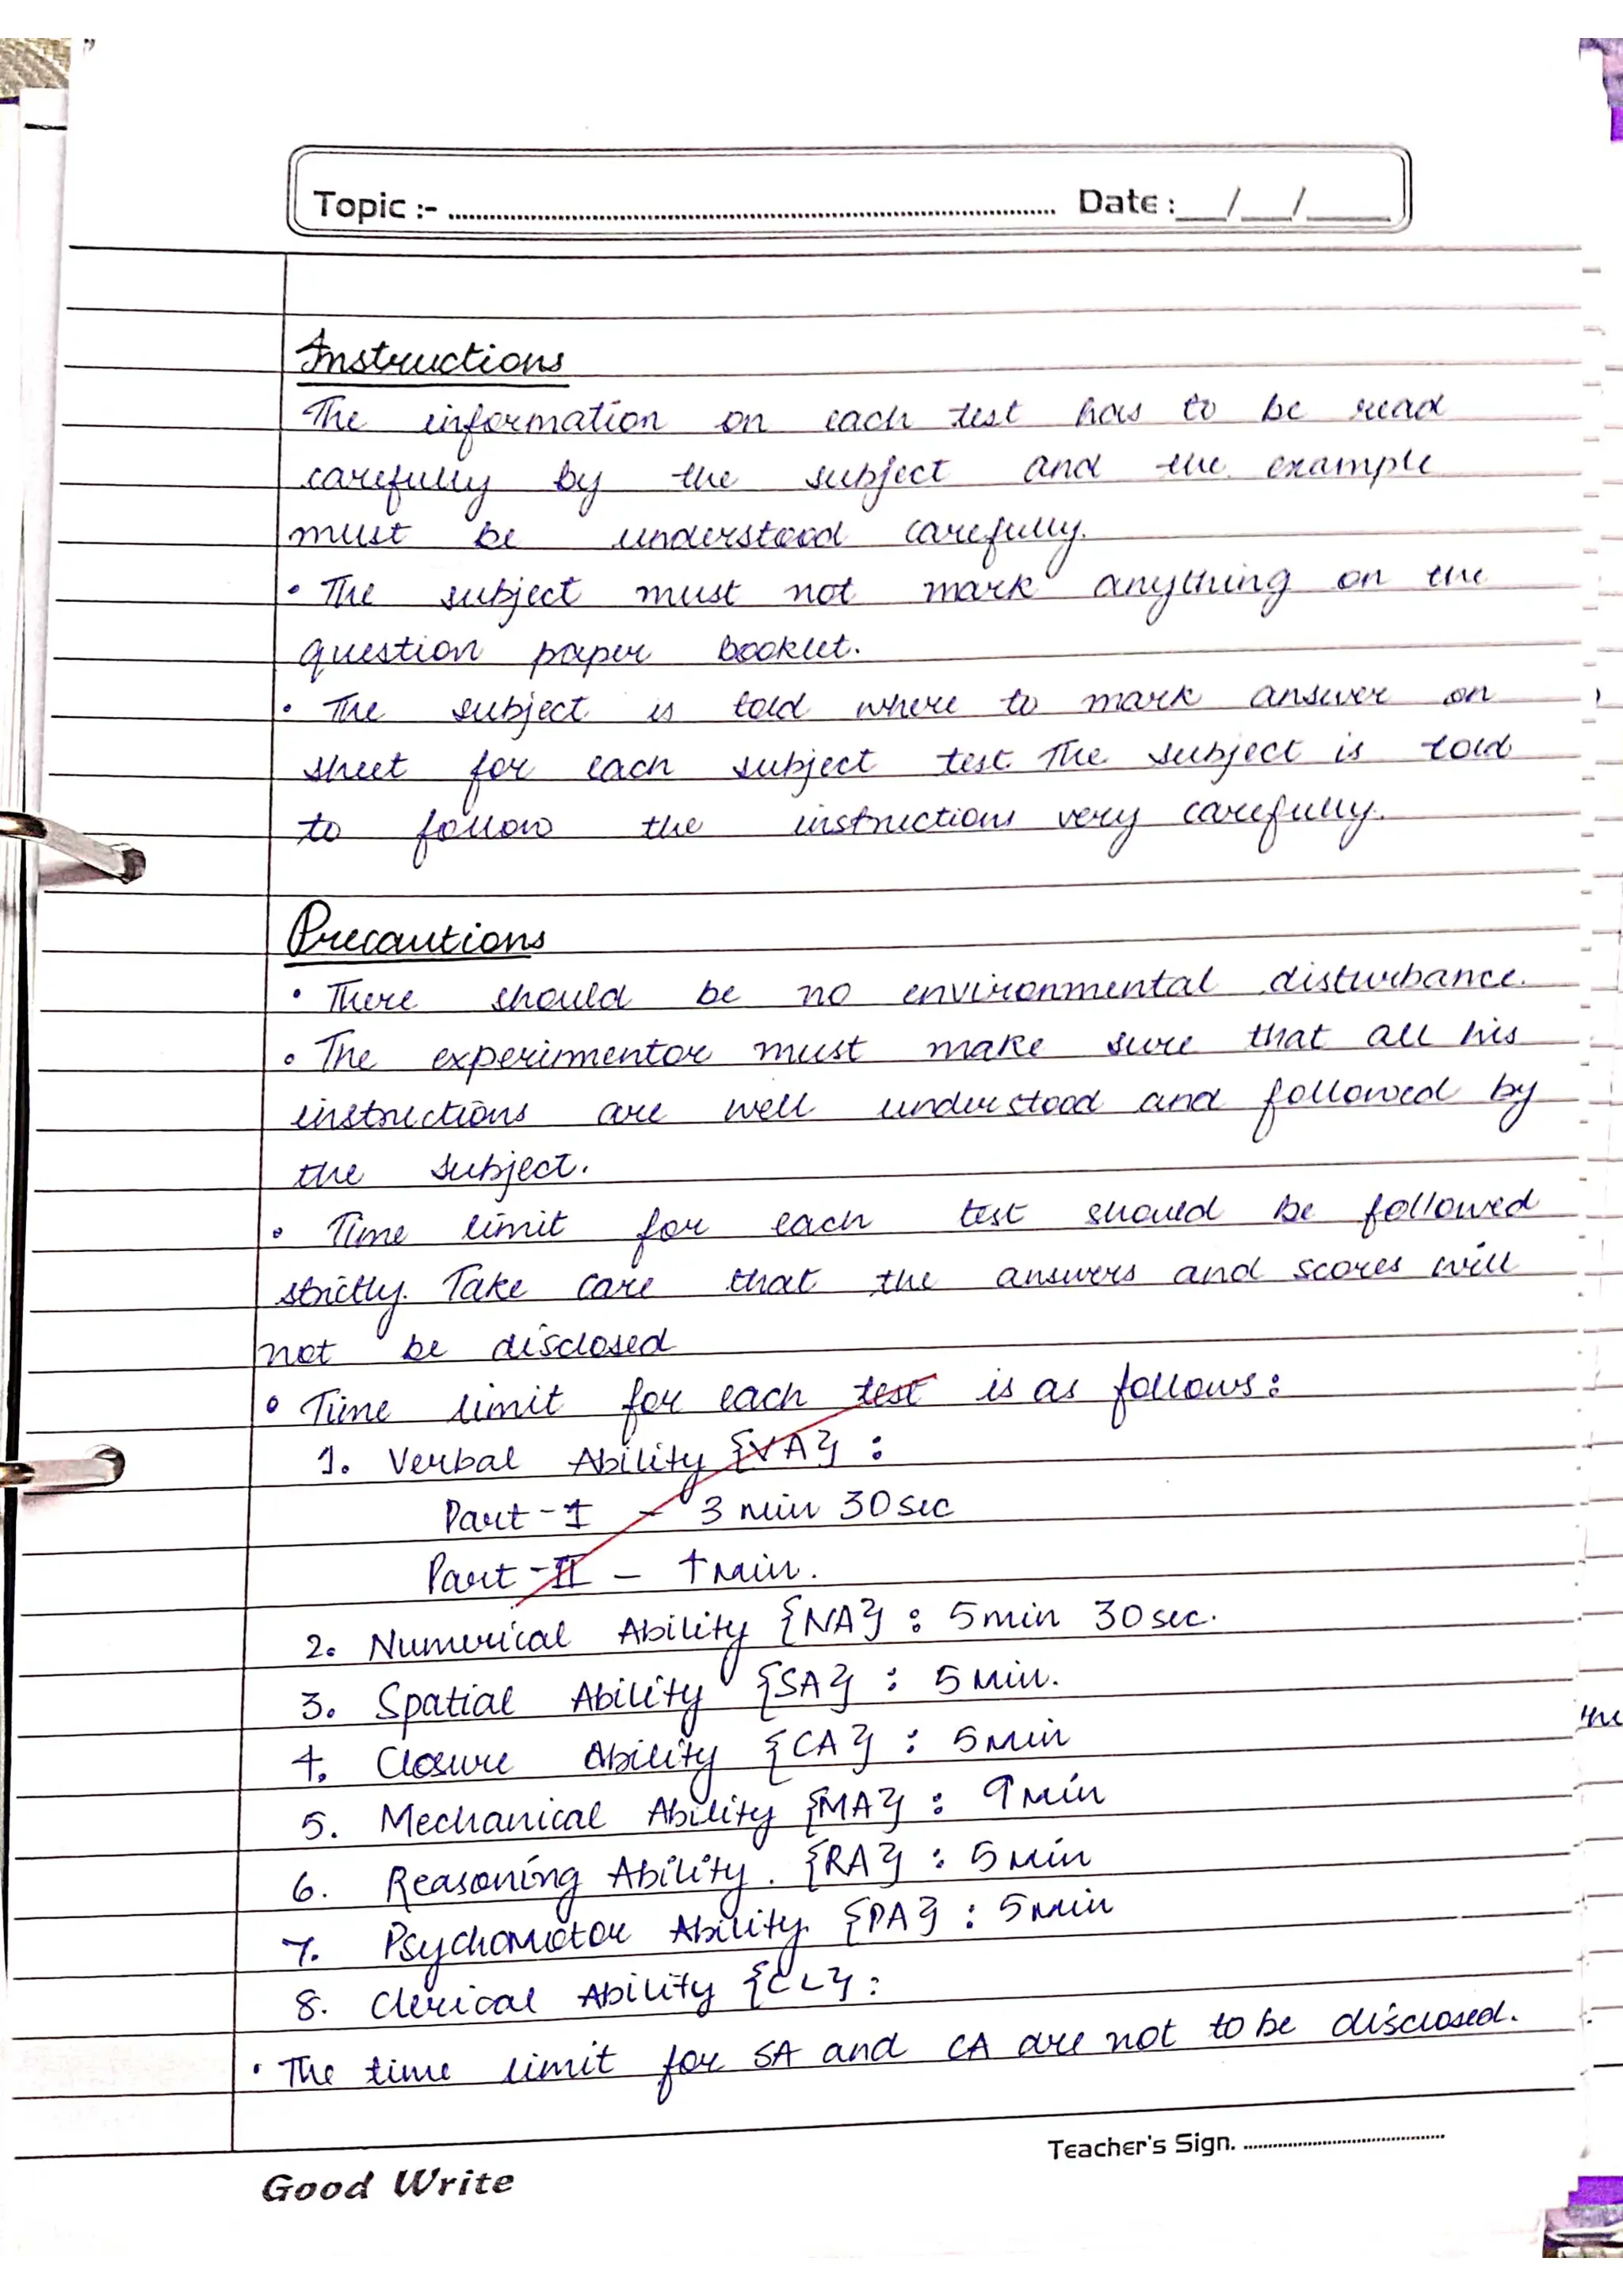 Topic :- ........ Date : __/__/____
Instructions
The information on each test has to be read
carefully by the subject and the example
must be understood carefully.
• The subject must not mark anything on the
question paper booklet.
• The subject is told where to mark answer on
sheet for each subject test. The subject is told
to follow the instructions very carefully.
Precautions
• There should be no environmental disturbance.
• The experimentor must make sure that all his
instructions are well understood and followed by
the subject.
• Time limit for each test should be followed
strictly. Take care that the answers and scores will
not be disclosed
• Time limit for each test is as follows:
1. Verbal Ability {VA} :
Part - I - 3 min 30 sec
Part - II - 4 min.
2. Numerical Ability {NA} : 5 min 30 sec.
3. Spatial Ability {SA} : 5 min.
4. Closure Ability {CA} : 5 min
5. Mechanical Ability {MA} : 9 min
6. Reasoning Ability. {RA} : 5 min
7. Psychomotor Ability. {PA} : 5 min
8. Clerical Ability {CL} :
• The time limit for SA and CA are not to be disclosed.
Teacher's Sign. ........
Good Write